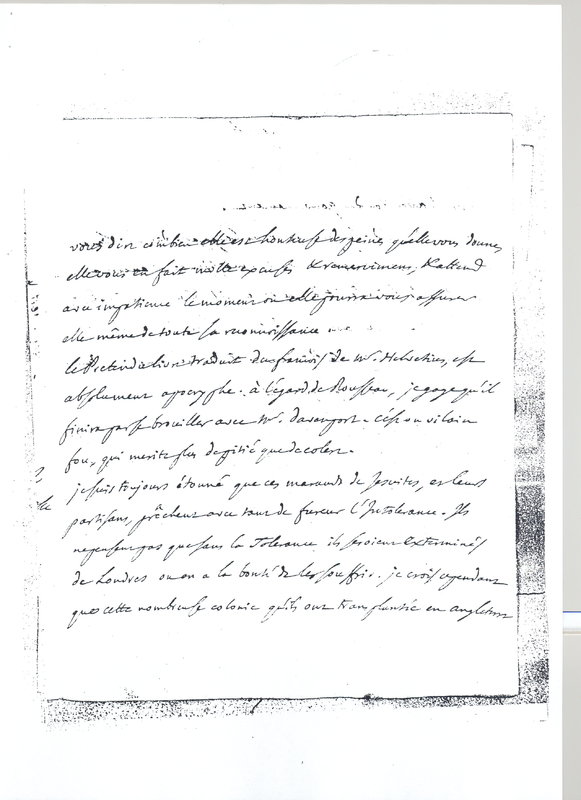 vous dire combien elle est honteuse des peines qu'elle vous donne,
elle vous en fait mille excuses & remercimens, & attend
avec impatience le moment où elle pourra vous assurer
elle même de toute sa reconnaissance
le Pretendu livre traduit du françois de Mr. Helvetius, est
absolument apocryphe. à l'égard de Rousseau, je gage qu'il
finira par se brouiller avec Mr. davenport. c'est un vilain
fou, qui merite plus de pitié que de colere.
je suis toujours étonné que ces marauds de Jesuites, et leurs
partisans, prêchent avec tant de fureur l'Intolerance. Ils
ne pensent pas que sans la Tolerance ils seroient exterminés
de Londres ou on a la bonté de les souffrir. je crois cependant
que cette nombreuse colonie qu'ils ont transplantée en angleterre